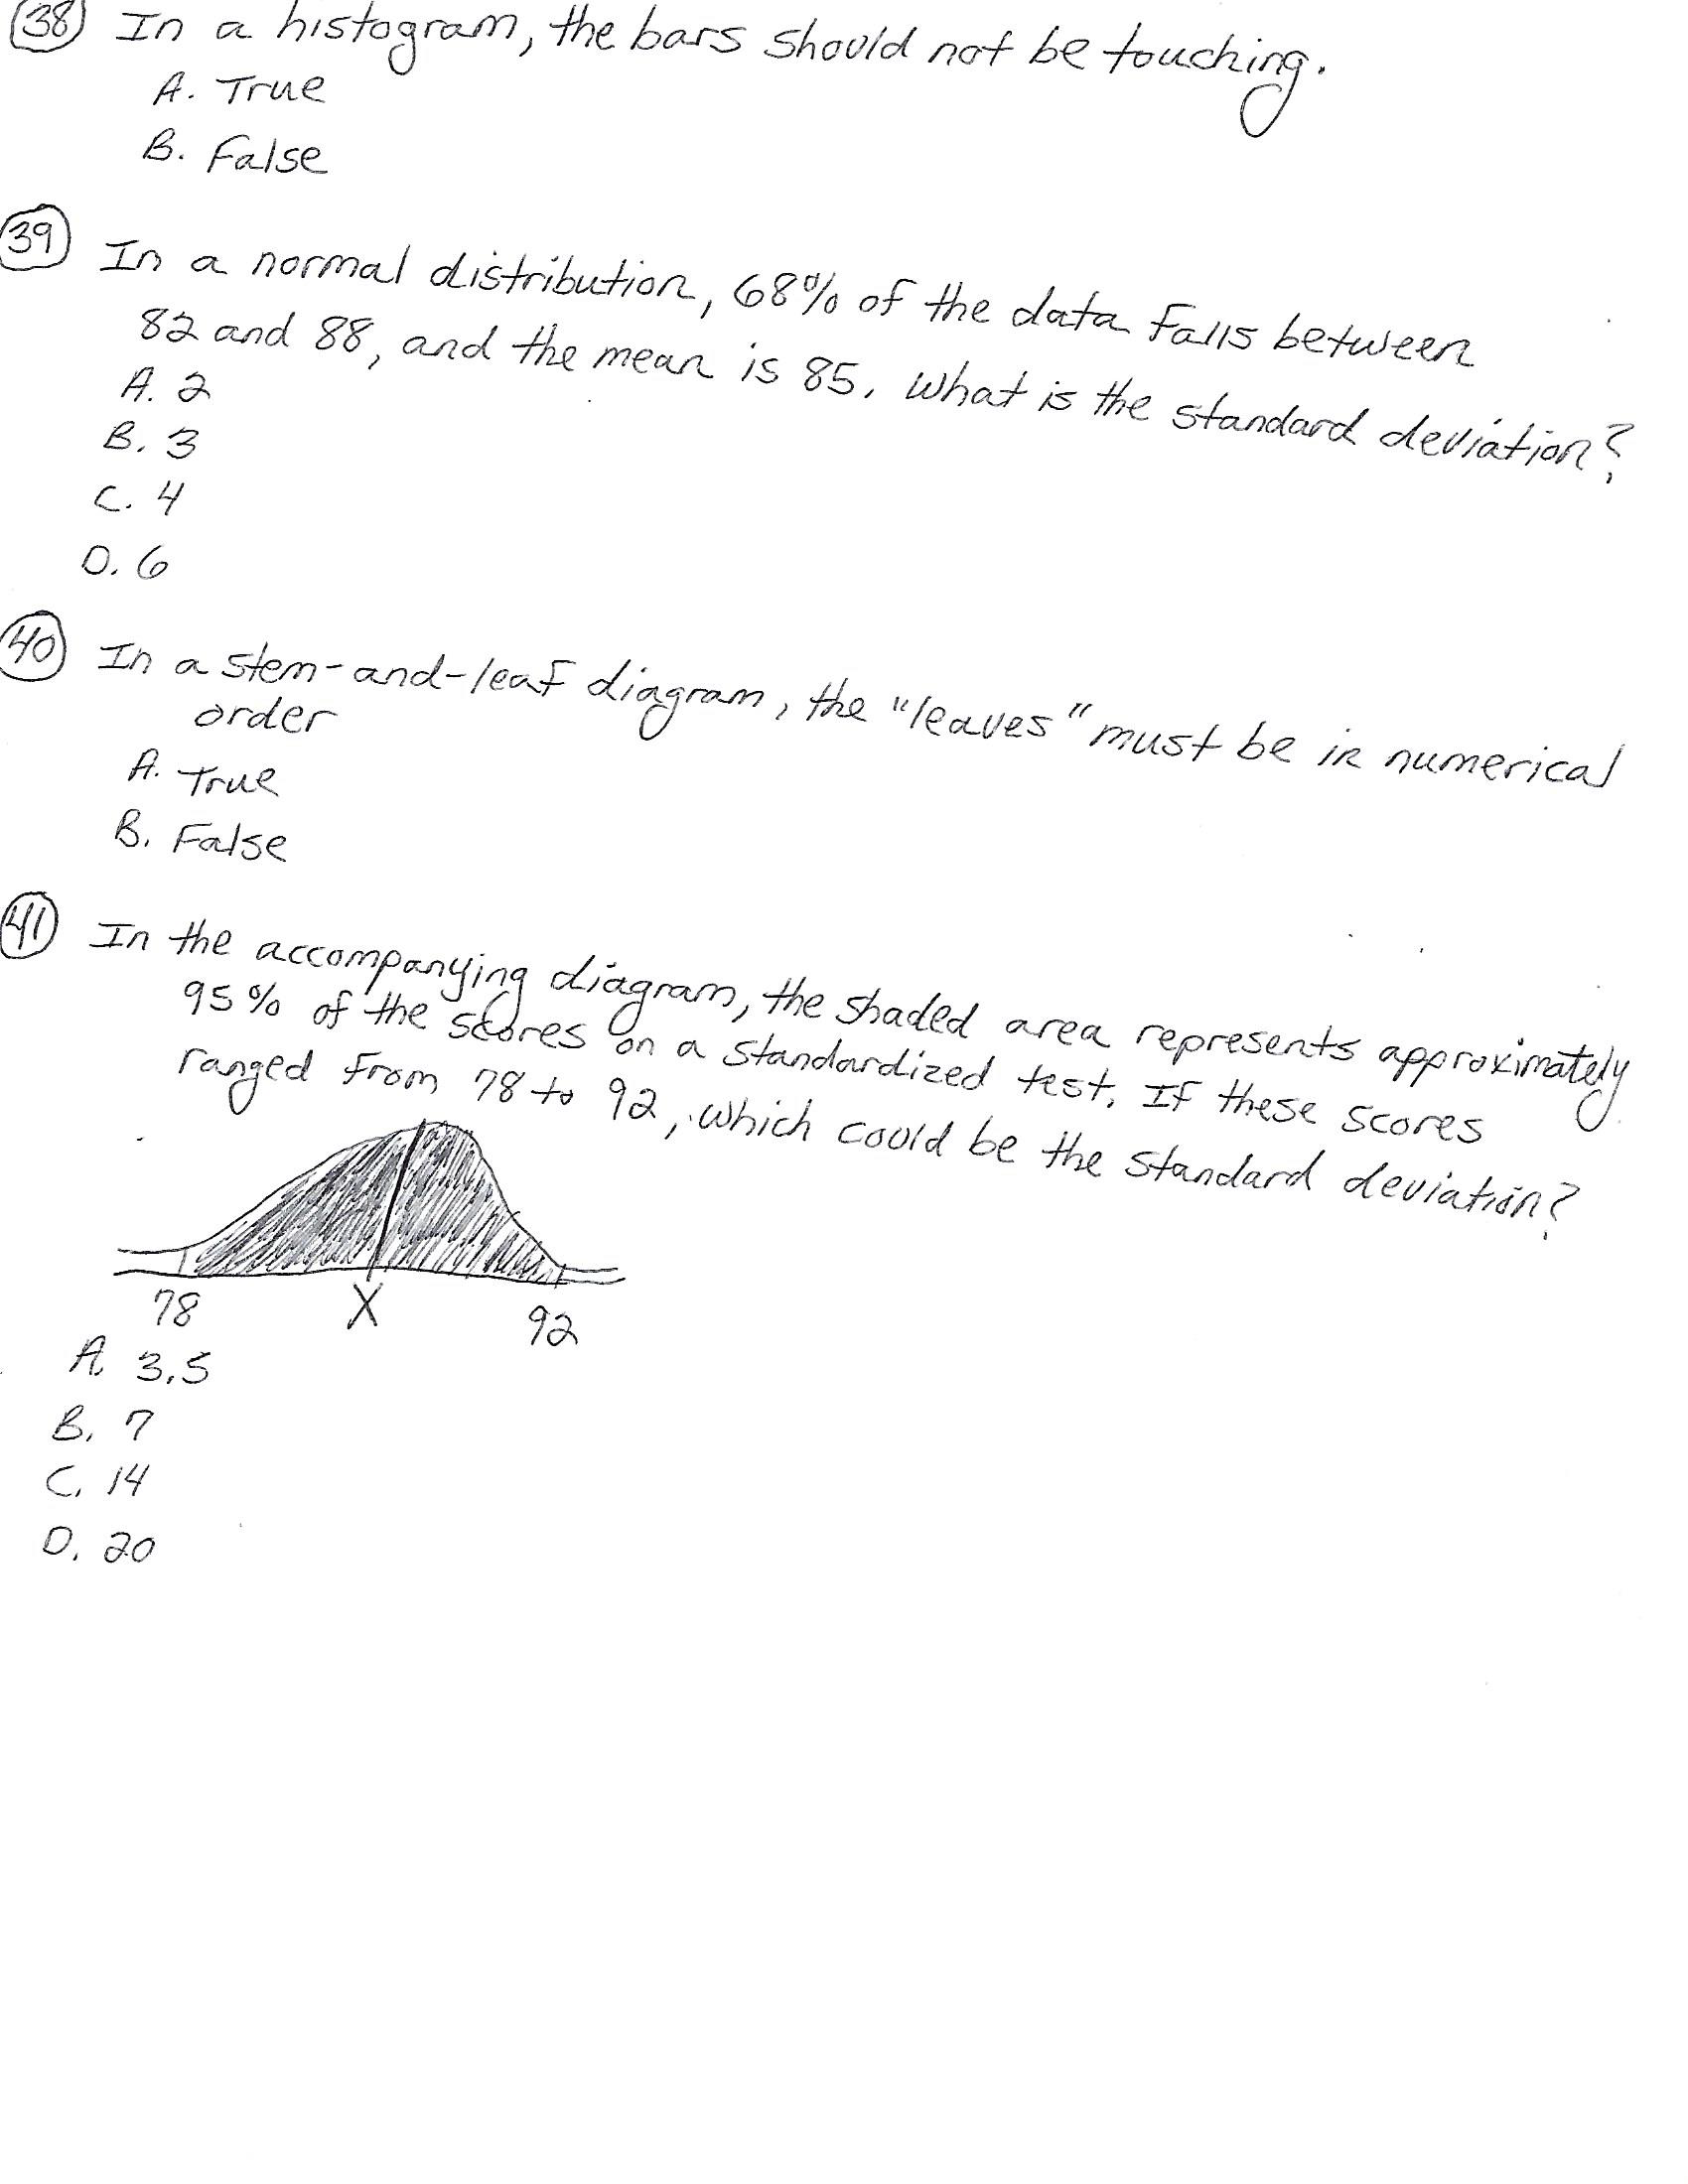 38 In a histogram, the bars should not be touching.
A. True
B. False
39 In a normal distribution, 68% of the data falls between
82 and 88, and the mean is 85. What is the standard deviation?
A. 2
B. 3
C. 4
D. 6
40 In a stem-and-leaf diagram, the "leaves" must be in numerical
order
A. True
B. False
41 In the accompanying diagram, the shaded area represents approximately
95% of the scores on a standardized test. If these scores
ranged from 78 to 92, which could be the standard deviation?
78 X 92
A. 3.5
B. 7
C. 14
D. 20